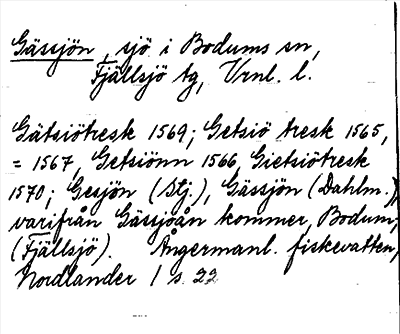 Gässjön, sjö i Bodums sn,
Fjällsjö tg, Vrnl. l.
Gätsiötresk 1569; Getsiö tresk 1565,
= 1567, Getsiönn 1566, Gietsiötresk
1570; Gesjön (Stj.), Gässjön (Dahlm.),
varifrån Gässjöån kommer, Bodum,
(Fjällsjö). Ångermanl. fiskevatten,
Nordlander 1 s. 22